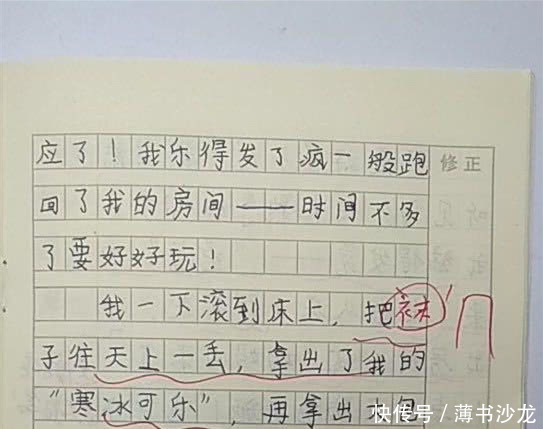 应了！我乐得发了疯一般跑
修正
回了我的房间——时间不多
了要好好玩！
我一下滚到床上，把袜
子往天上一丢，拿出了我的
“寒冰可乐”，再拿出
快传号 / 薄书沙龙